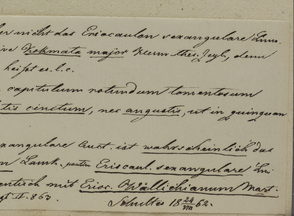 nicht das Eriocaulon sexangulare Linn.
major Herm. thes. Zeyl. denn
heißt es l.c.
capitulum rotundum tomentosum
cinctum, nec angustis, ut in quinquan
sexangulare Auct. ist wahrscheinlich das
Lamk. Eriocaul. sexangulare
mit Erioc. Wallichianum Mart.
Schultes 18 24/VIII 62.